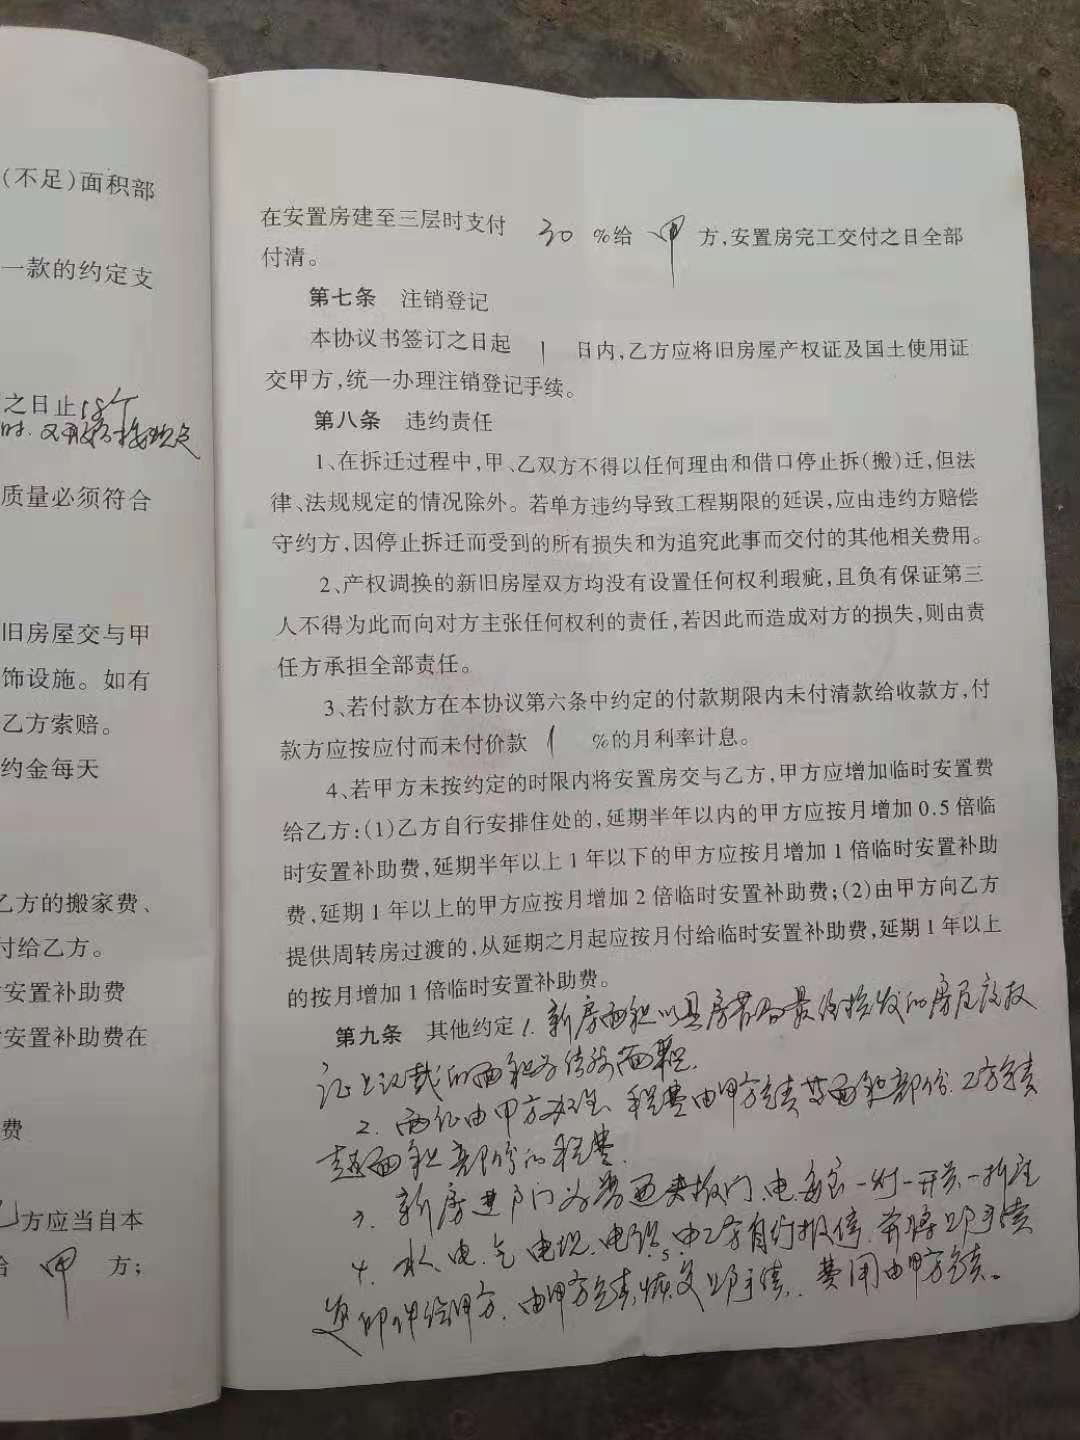 (不足)面积部
一款的约定支
之日止18个
时.
质量必须符合
旧房屋交与甲
饰设施。如有
乙方索赔。
约金每天
乙方的搬家费、
付给乙方。
安置补助费
安置补助费在
费
方应当自本
给 甲 方;
在安置房建至三层时支付 30 %给 甲 方,安置房完工交付之日全部
付清。
第七条 注销登记
本协议书签订之日起 1 日内,乙方应将旧房屋产权证及国土使用证
交甲方,统一办理注销登记手续。
第八条 违约责任
1、在拆迁过程中,甲、乙双方不得以任何理由和借口停止拆(搬)迁,但法
律、法规规定的情况除外。若单方违约导致工程期限的延误,应由违约方赔偿
守约方,因停止拆迁而受到的所有损失和为追究此事而交付的其他相关费用。
2、产权调换的新旧房屋双方均没有设置任何权利瑕疵,且负有保证第三
人不得为此而向对方主张任何权利的责任,若因此而造成对方的损失,则由责
任方承担全部责任。
3、若付款方在本协议第六条中约定的付款期限内未付清款给收款方,付
款方应按应付而未付价款 1 %的月利率计息。
4、若甲方未按约定的时限内将安置房交与乙方,甲方应增加临时安置费
给乙方:(1)乙方自行安排住处的,延期半年以内的甲方应按月增加0.5倍临
时安置补助费,延期半年以上1年以下的甲方应按月增加1倍临时安置补助
费,延期1年以上的甲方应按月增加2倍临时安置补助费;(2)由甲方向乙方
提供周转房过渡的,从延期之月起应按月付给临时安置补助费,延期1年以上
的按月增加1倍临时安置补助费。
第九条 其他约定 1. 新房面积以县房管局最终核发的房屋产权
证上记载的面积为结算面积.
2. 两证由甲方办理、税费由甲方负责等面积部份.乙方负责
超面积部份的税费.
3. 新房进户门为普通夹板门、电每室一灯一开关一插座
4. 水、电、气、电视、电话、由乙方自行报停.并将 手续
复印件给甲方.由甲方负责恢复 手续.费用由甲方负责。
5